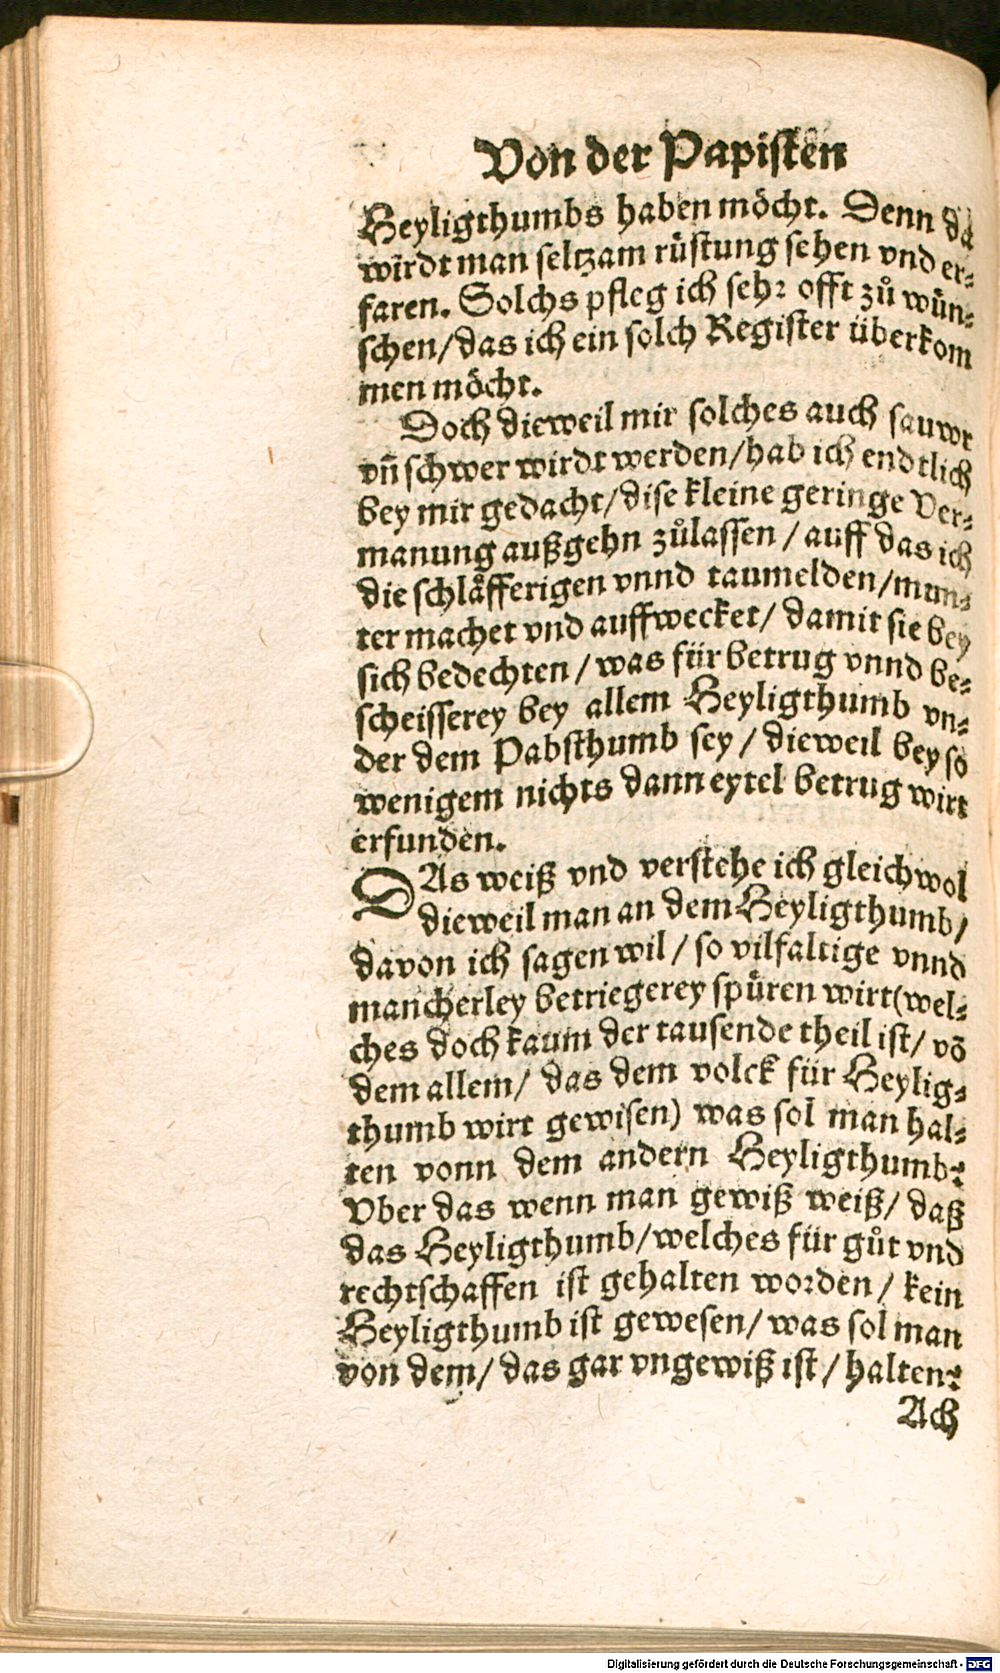 Von der Papisten
Heyligthumbs haben möcht. Denn da
wirdt man seltzam rüstung sehen vnd er-
faren. Solchs pfleg ich sehr offt zů wün-
schen/das ich ein solch Register überkom
men möcht.
Doch dieweil mir solches auch sauwr
vñ schwer wirdt werden/hab ich endtlich
bey mir gedacht/dise kleine geringe Ver-
manung außgehn zůlassen / auff das ich
die schläfferigen vnnd taumelden/mun-
ter machet vnd auffwecket/ damit sie bey
sich bedechten / was für betrug vnnd be-
scheisserey bey allem Heyligthumb vn-
der dem Pabsthumb sey / dieweil bey so
wenigem nichts dann eytel betrug wirt
erfunden.
DAs weiß vnd verstehe ich gleichwol
dieweil man an dem Heyligthumb/
davon ich sagen wil / so vilfaltige vnnd
mancherley betriegerey spüren wirt(wel-
ches doch kaum der tausende theil ist/ võ
dem allem/ das dem volck für Heylig-
thumb wirt gewisen) was sol man hal-
ten vonn dem andern Heyligthumb?
Vber das wenn man gewiß weiß/ daß
das Heyligthumb/welches für gůt vnd
rechtschaffen ist gehalten worden / kein
Heyligthumb ist gewesen/ was sol man
von dem/ das gar vngewiß ist / halten?
Ach
Digitalisierung gefördert durch die Deutsche Forschungsgemeinschaft - DFG